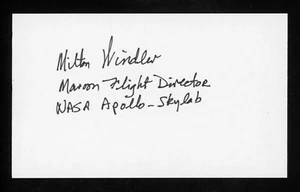 Milton Windler
Maroon Flight Director
NASA Apollo-Skylab